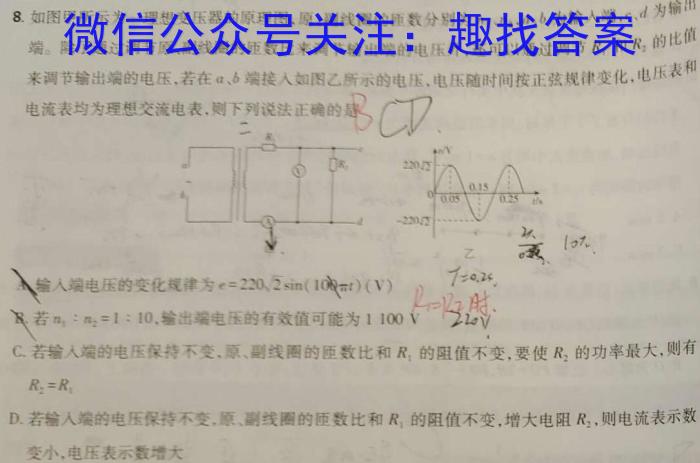 微信公众号关注：趣找答案
8. 如图甲所示为一理想变压器的原理图,原、副线圈的匝数分别 a、b 为输入端,c、d 为输出
端。除 通过调节原、副线圈的匝数比来调节输出端的电压外,还可以通过调节 R₁ 和 R₂ 的比值
来调节输出端的电压,若在 a、b 端接入如图乙所示的电压,电压随时间按正弦规律变化,电压表和
电流表均为理想交流电表,则下列说法正确的是 BCD.
R₁
R₂
V
A
a
b
c
d
u/V
220√2
0
-220√2
0.05
0.15
0.25
t/s
乙
T=0.2s
10π.
A. 输入端电压的变化规律为 e=220√2sin(100πt)(V)
R₁=R₂时.
B. 若 n₁∶n₂=1∶10,输出端电压的有效值可能为 1 100 V
220V
C. 若输入端的电压保持不变,原、副线圈的匝数比和 R₁ 的阻值不变,要使 R₂ 的功率最大,则有
R₂=R₁
D. 若输入端的电压保持不变,原、副线圈的匝数比和 R₁ 的阻值不变,增大电阻 R₂,则电流表示数
变小,电压表示数增大